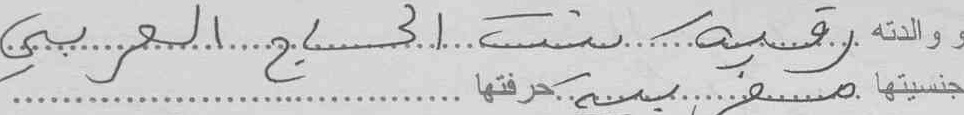 و والدته رقية بنت الحاج العربي
جنسيتها مغربية حرفتها